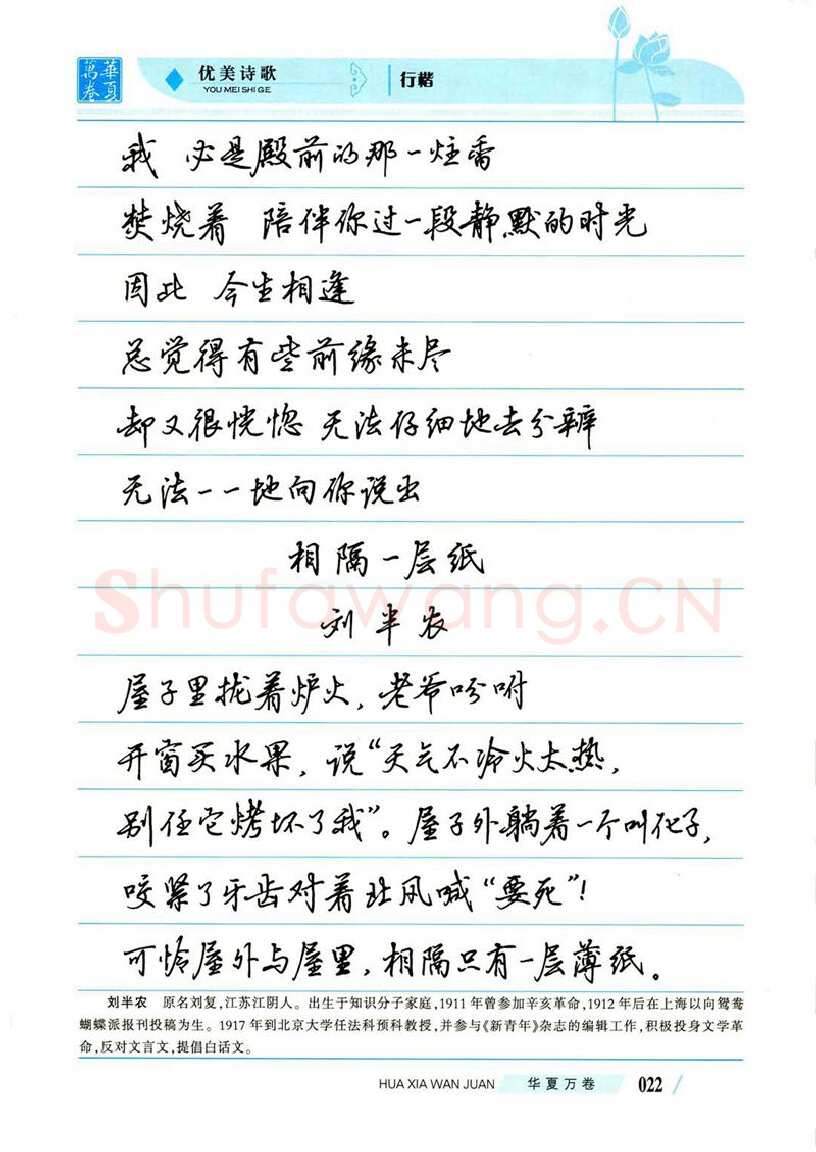 華夏
萬卷
优美诗歌
YOU MEI SHI GE
行楷
我 必是殿前的那一炷香
焚烧着 陪伴你过一段静默的时光
因此 今生相逢
总觉得有些前缘未尽
却又很恍惚 无法仔细地去分辨
无法一一地向你说出
相隔一层纸
刘半农
屋子里拢着炉火，老爷吩咐
开窗买水果，说“天气不冷火太热，
别任它烤坏了我”。屋子外躺着一个叫化子，
咬紧了牙齿对着北风喊“要死”！
可怜屋外与屋里，相隔只有一层薄纸。
Shufawang.CN
刘半农 原名刘复，江苏江阴人。出生于知识分子家庭，1911年曾参加辛亥革命，1912年后在上海以向鸳鸯
蝴蝶派报刊投稿为生。1917年到北京大学任法科预科教授，并参与《新青年》杂志的编辑工作，积极投身文学革
命，反对文言文，提倡白话文。
HUA XIA WAN JUAN 华夏万卷 022